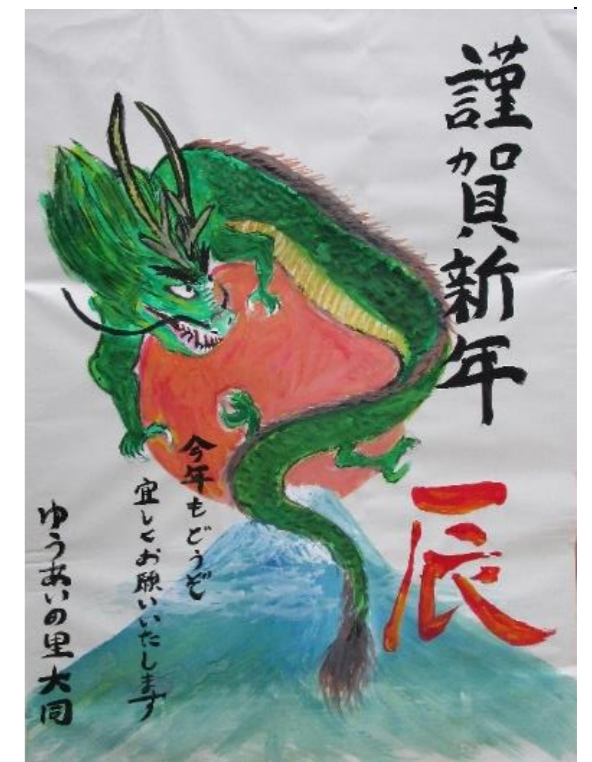 謹賀新年
辰
今年もどうぞ
宜しくお願いいたします
ゆうあいの里大同